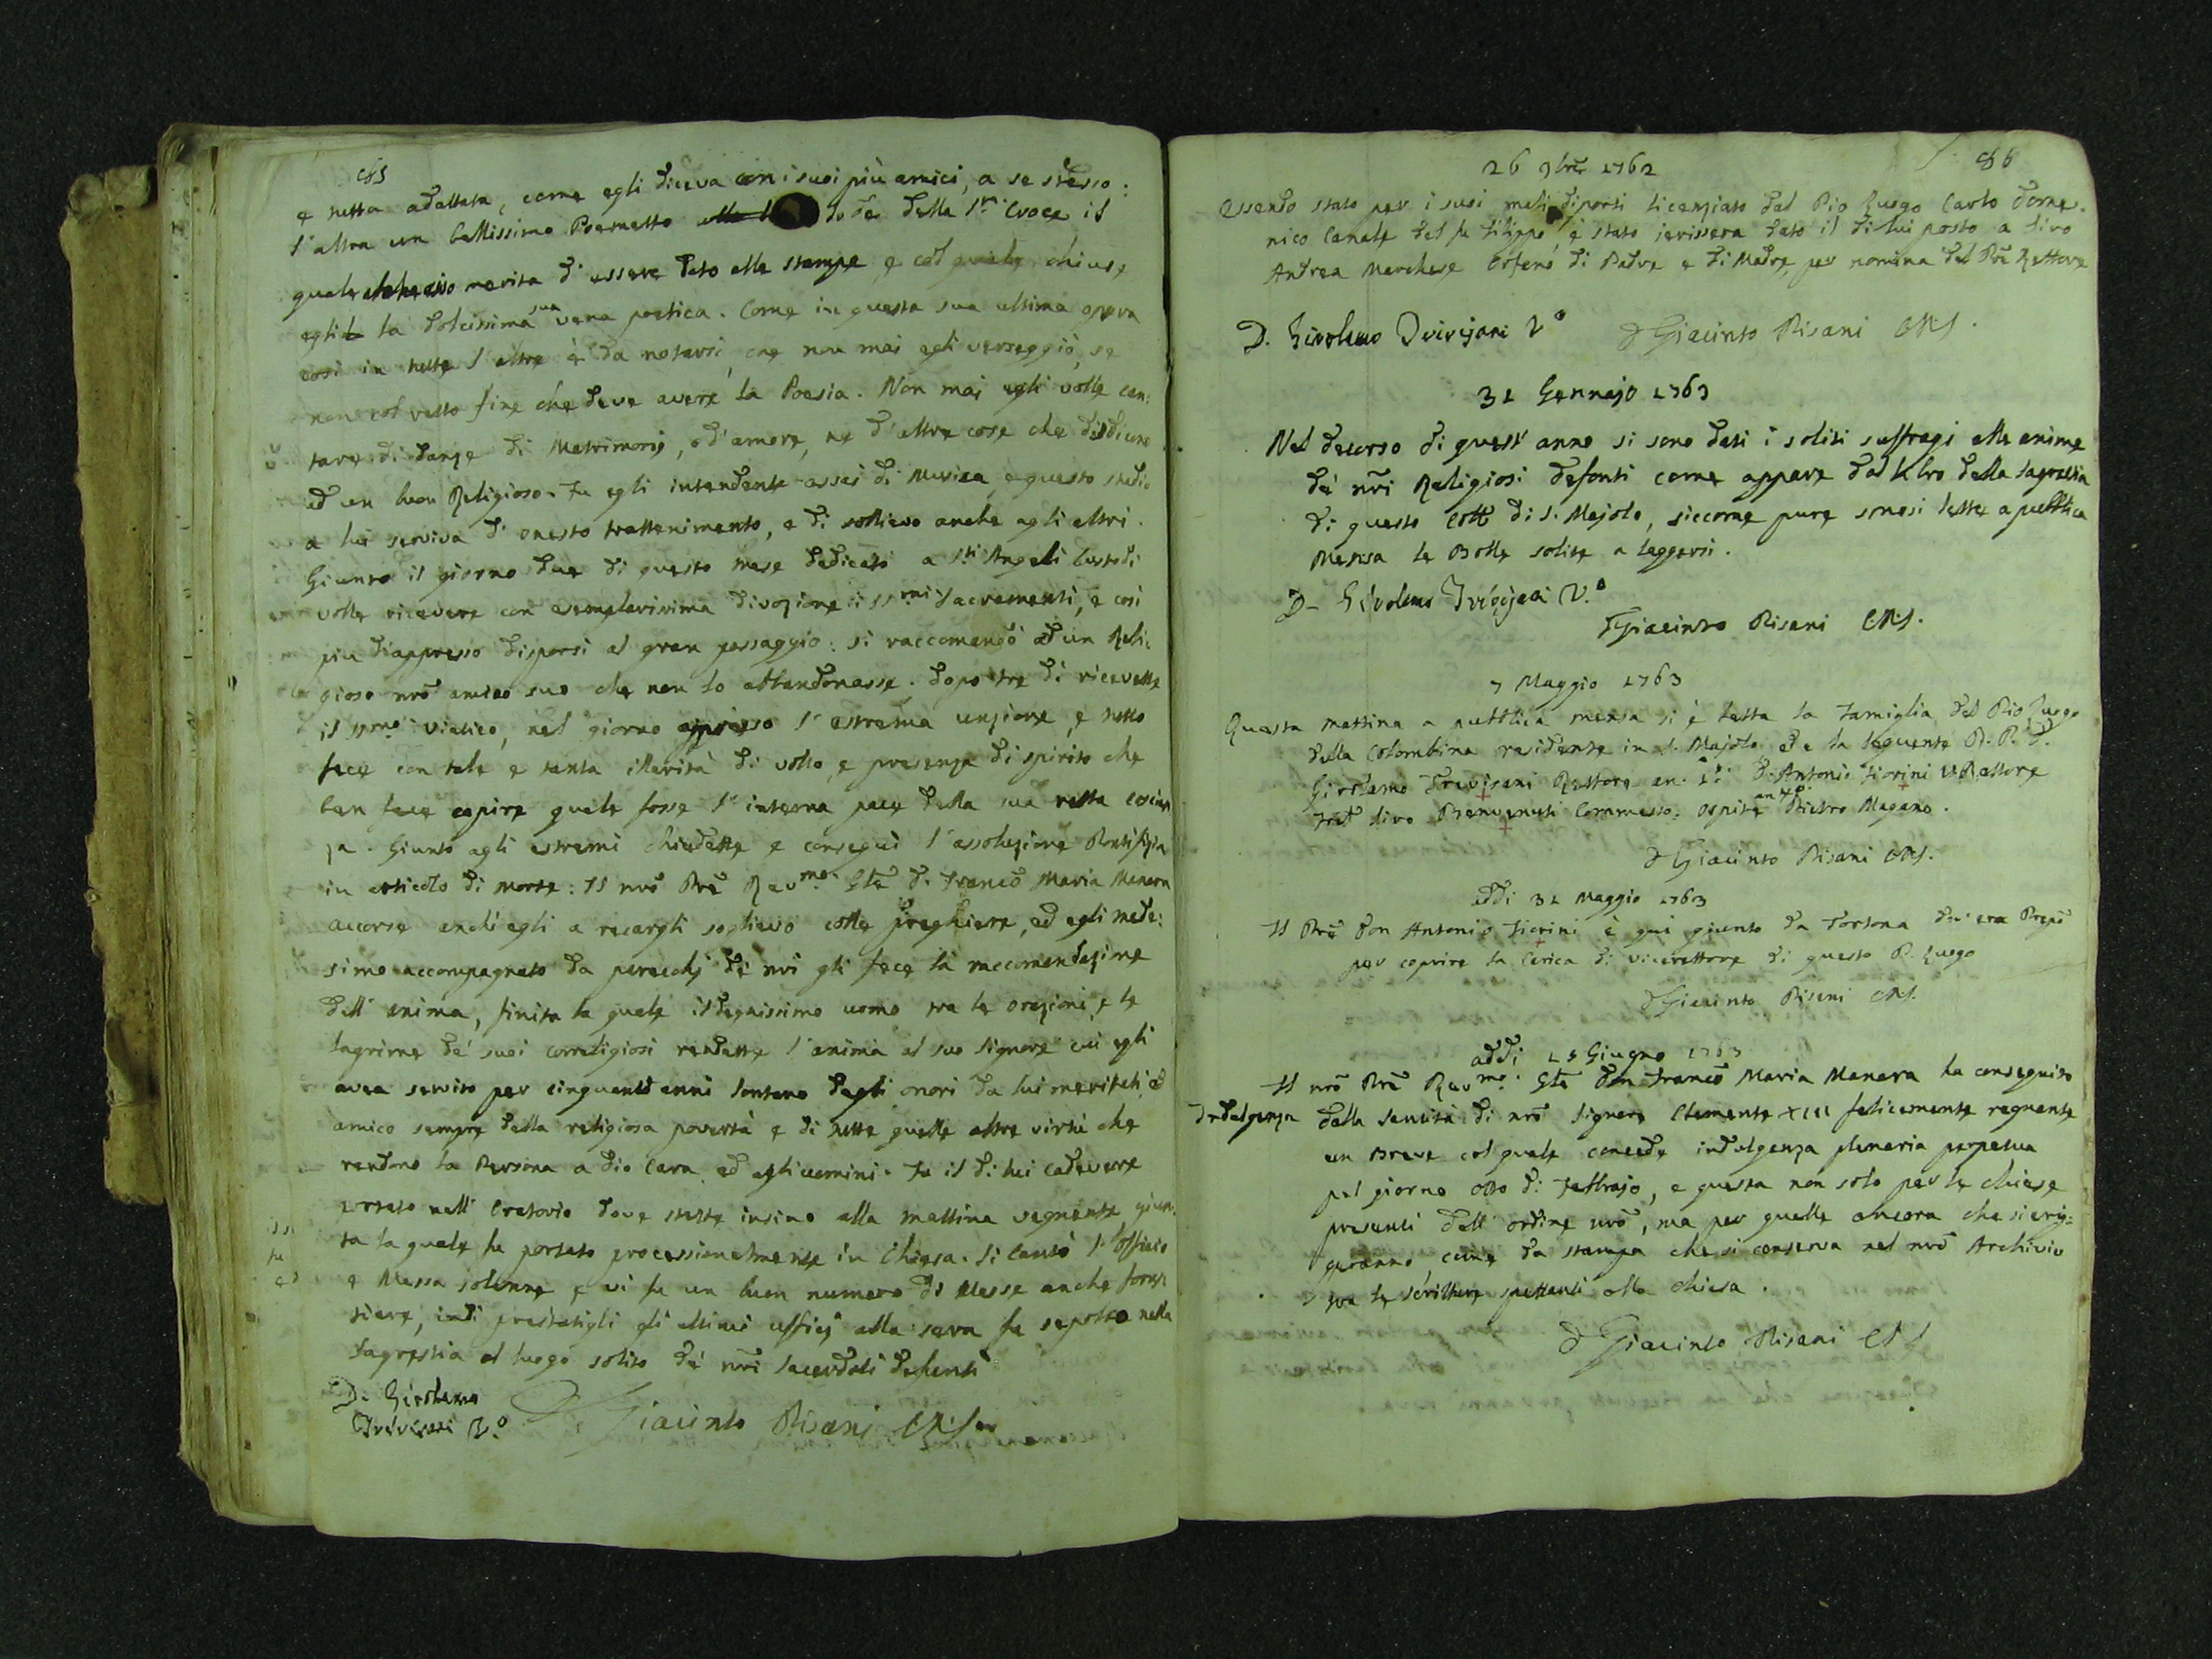 85
e tutta adattata, come egli diceva con i suoi più amici, a se stesso:
l'altra un bellissimo Poemetto alla lode della S.ta Croce il
quale merita d'essere dato alle stampe, e col quale chiuse
egli la dolcissima sua vena poetica. Come in questa sua ultima opera
così in tutte l'altre è da notarsi, che non mai egli verseggiò, se
non col retto fine che deve avere la Poesia. Non mai egli volle can:
tare di danze di Matrimonj, o d'amore, ne d'altre cose che disdicono
ad un buon Religioso. Fu egli intendente assai di Musica, e questo studio
a lui serviva d'onesto trattenimento, e di sollievo anche agli altri.
Giunto il giorno due di questo mese dedicato a S.ti Angeli Custodi
volle ricevere con esemplarissima divozione i SS.mi Sacramenti, e così
più dappresso disporsi al gran passaggio: si raccomandò ad un Reli:
gioso nrõ amico suo che non lo abbandonasse. Dopo tre dì ricevette
il SS.mo viatico, nel giorno appresso l'estrema unzione, e tutto
fece con tale e tanta illarità di volto, e presenza di spirito che
ben fece capire quale fosse l'interna pace della sua retta coscien
za. Giunto agli estremi chiedette e conseguì l'assoluzione Pontifizia
in articolo di morte: Il nrõ Prẽ Rev.mo Glẽ D. Francõ Maria Manara
accorse anch'egli a recargli sollievo colle preghiere, ed egli mede:
simo accompagnato da parecchj de' nri gli fece la raccomandazione
dell'anima, finita la quale il degnissimo uomo tra le orazioni, e le
lagrime de' suoi correligiosi rendette l'anima al suo Signore cui egli
avea servito per cinquant'anni lontano dagli onori da lui meritati, ed
amico sempre della religiosa povertà e di tutte quelle altre virtù che
rendono la Persona a Dio cara ed agli uomini. Fu il di lui cadavere
portato nell'Oratorio dove stette insino alla mattina vegnente giun:
ta la quale fu portato processionalmente in Chiesa. Si cantò l'offizio
e Messa solenne e vi fu un buon numero di Messe anche fores
tiere, indi prestatigli gli ultimi uffizj alla sera fu sepolto nella
Sagrestia al luogo solito de' nri Sacerdoti defunti
D. Girolamo
Trivisani V.o D Giacinto Pisani CRS
86
26 9brẽ 1762
Essendo stato per i suoi mali diporti licenziato dal Pio Luogo Carlo Dome:
nico Canale del fu Filippo, è stato ierissera dato il di lui posto a Siro
Andrea Marchese Orfano di Padre e di Madre, per nomina del Prẽ Rettore
D. Girolamo Trivisani V.o D Giacinto Pisani CRS.
31 Gennajo 1763
Nel decorso di quest'anno si sono dati i soliti suffragj alle anime
de' nri Religiosi defonti come appare dal libro della Sagrestia
di questo Coll.o di S. Majolo, siccome pure sonosi lette a pubblica
Mensa le Bolle solite a leggersi.
D. Girolamo Trivisani V.o
D Giacinto Pisani CRS.
7 Maggio 1763
Questa mattina a pubblica mensa si è letta la Famiglia del Pio Luogo
della Colombina residente in S. Majolo, ed è la seguente P. P. D.
Girolamo Trevisani Rettore an. 1.o D. Antonio Fiorini V. Rettore
Frat Siro Benvenuti Commesso. Ospite an 40 Pietro Magano.
D Giacinto Pisani CRS.
addi 31 Maggio 1763
Il Prẽ Don Antonio Fiorini è quì giunto da Tortona dov'era Prepõ
per coprire la carica di vicerettore di questo P. Luogo
D Giacinto Pisani CRS.
addi 15 Giugno 1763
Il nrõ Prẽ Rev.mo Glẽ Don Francõ Maria Manara ha conseguito
Indulgenza dalla Santità di nrõ Signore Clemente XIII felicemente regnante
un Breve col quale concede indulgenza plenaria perpetua
pel giorno otto di Febbrajo, e questa non solo per le chiese
presenti dell'ordine nrõ, ma per quelle ancora che si erig=
geranno, come da stampa che si conserva nel nrõ Archivio
tra le scritture spettanti alla Chiesa.
D Giacinto Pisani CRS